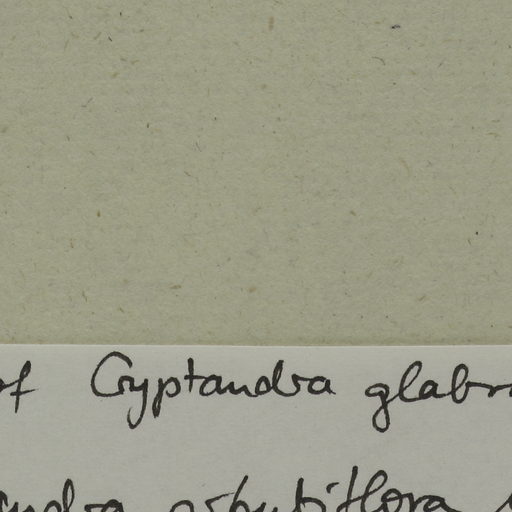 of Cryptandra glabra
andra arbutiflora